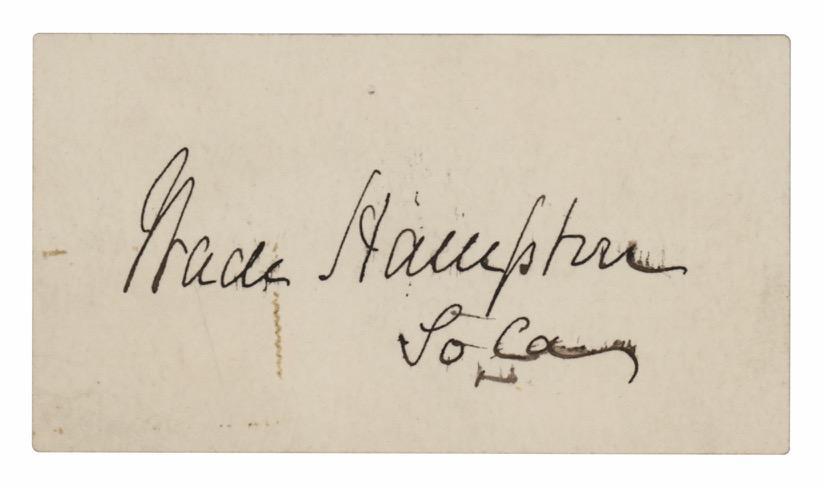 Wade Hampton
So Ca